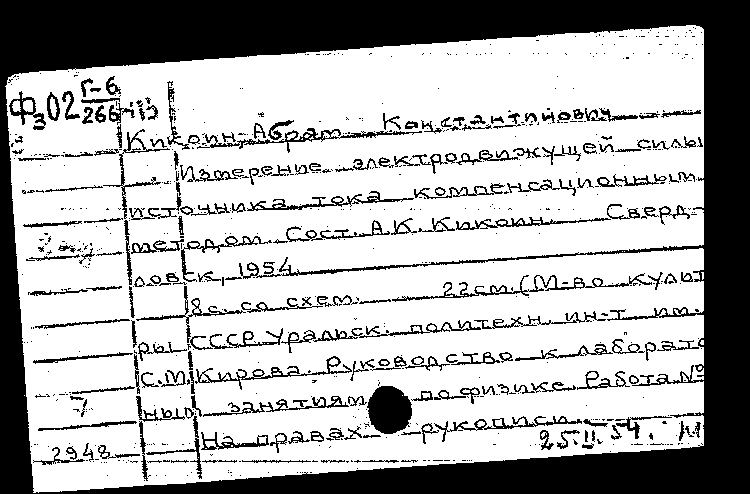 Ф₃02 Г-6
266
Кикоин, Абрам Константинович
Измерение электродвижущей силы
источника тока компенсационным
методом. Сост. А.К. Кикоин. Сверд-
ловск, 1954.
8с. со схем. 22см. (М-во культ
ры СССР. Уральск. политехн. ин-т им.
С.М. Кирова. Руководство к лаборато
ным занятиям по физике. Работа №
7
На правах рукописи
2948 25.II.54.